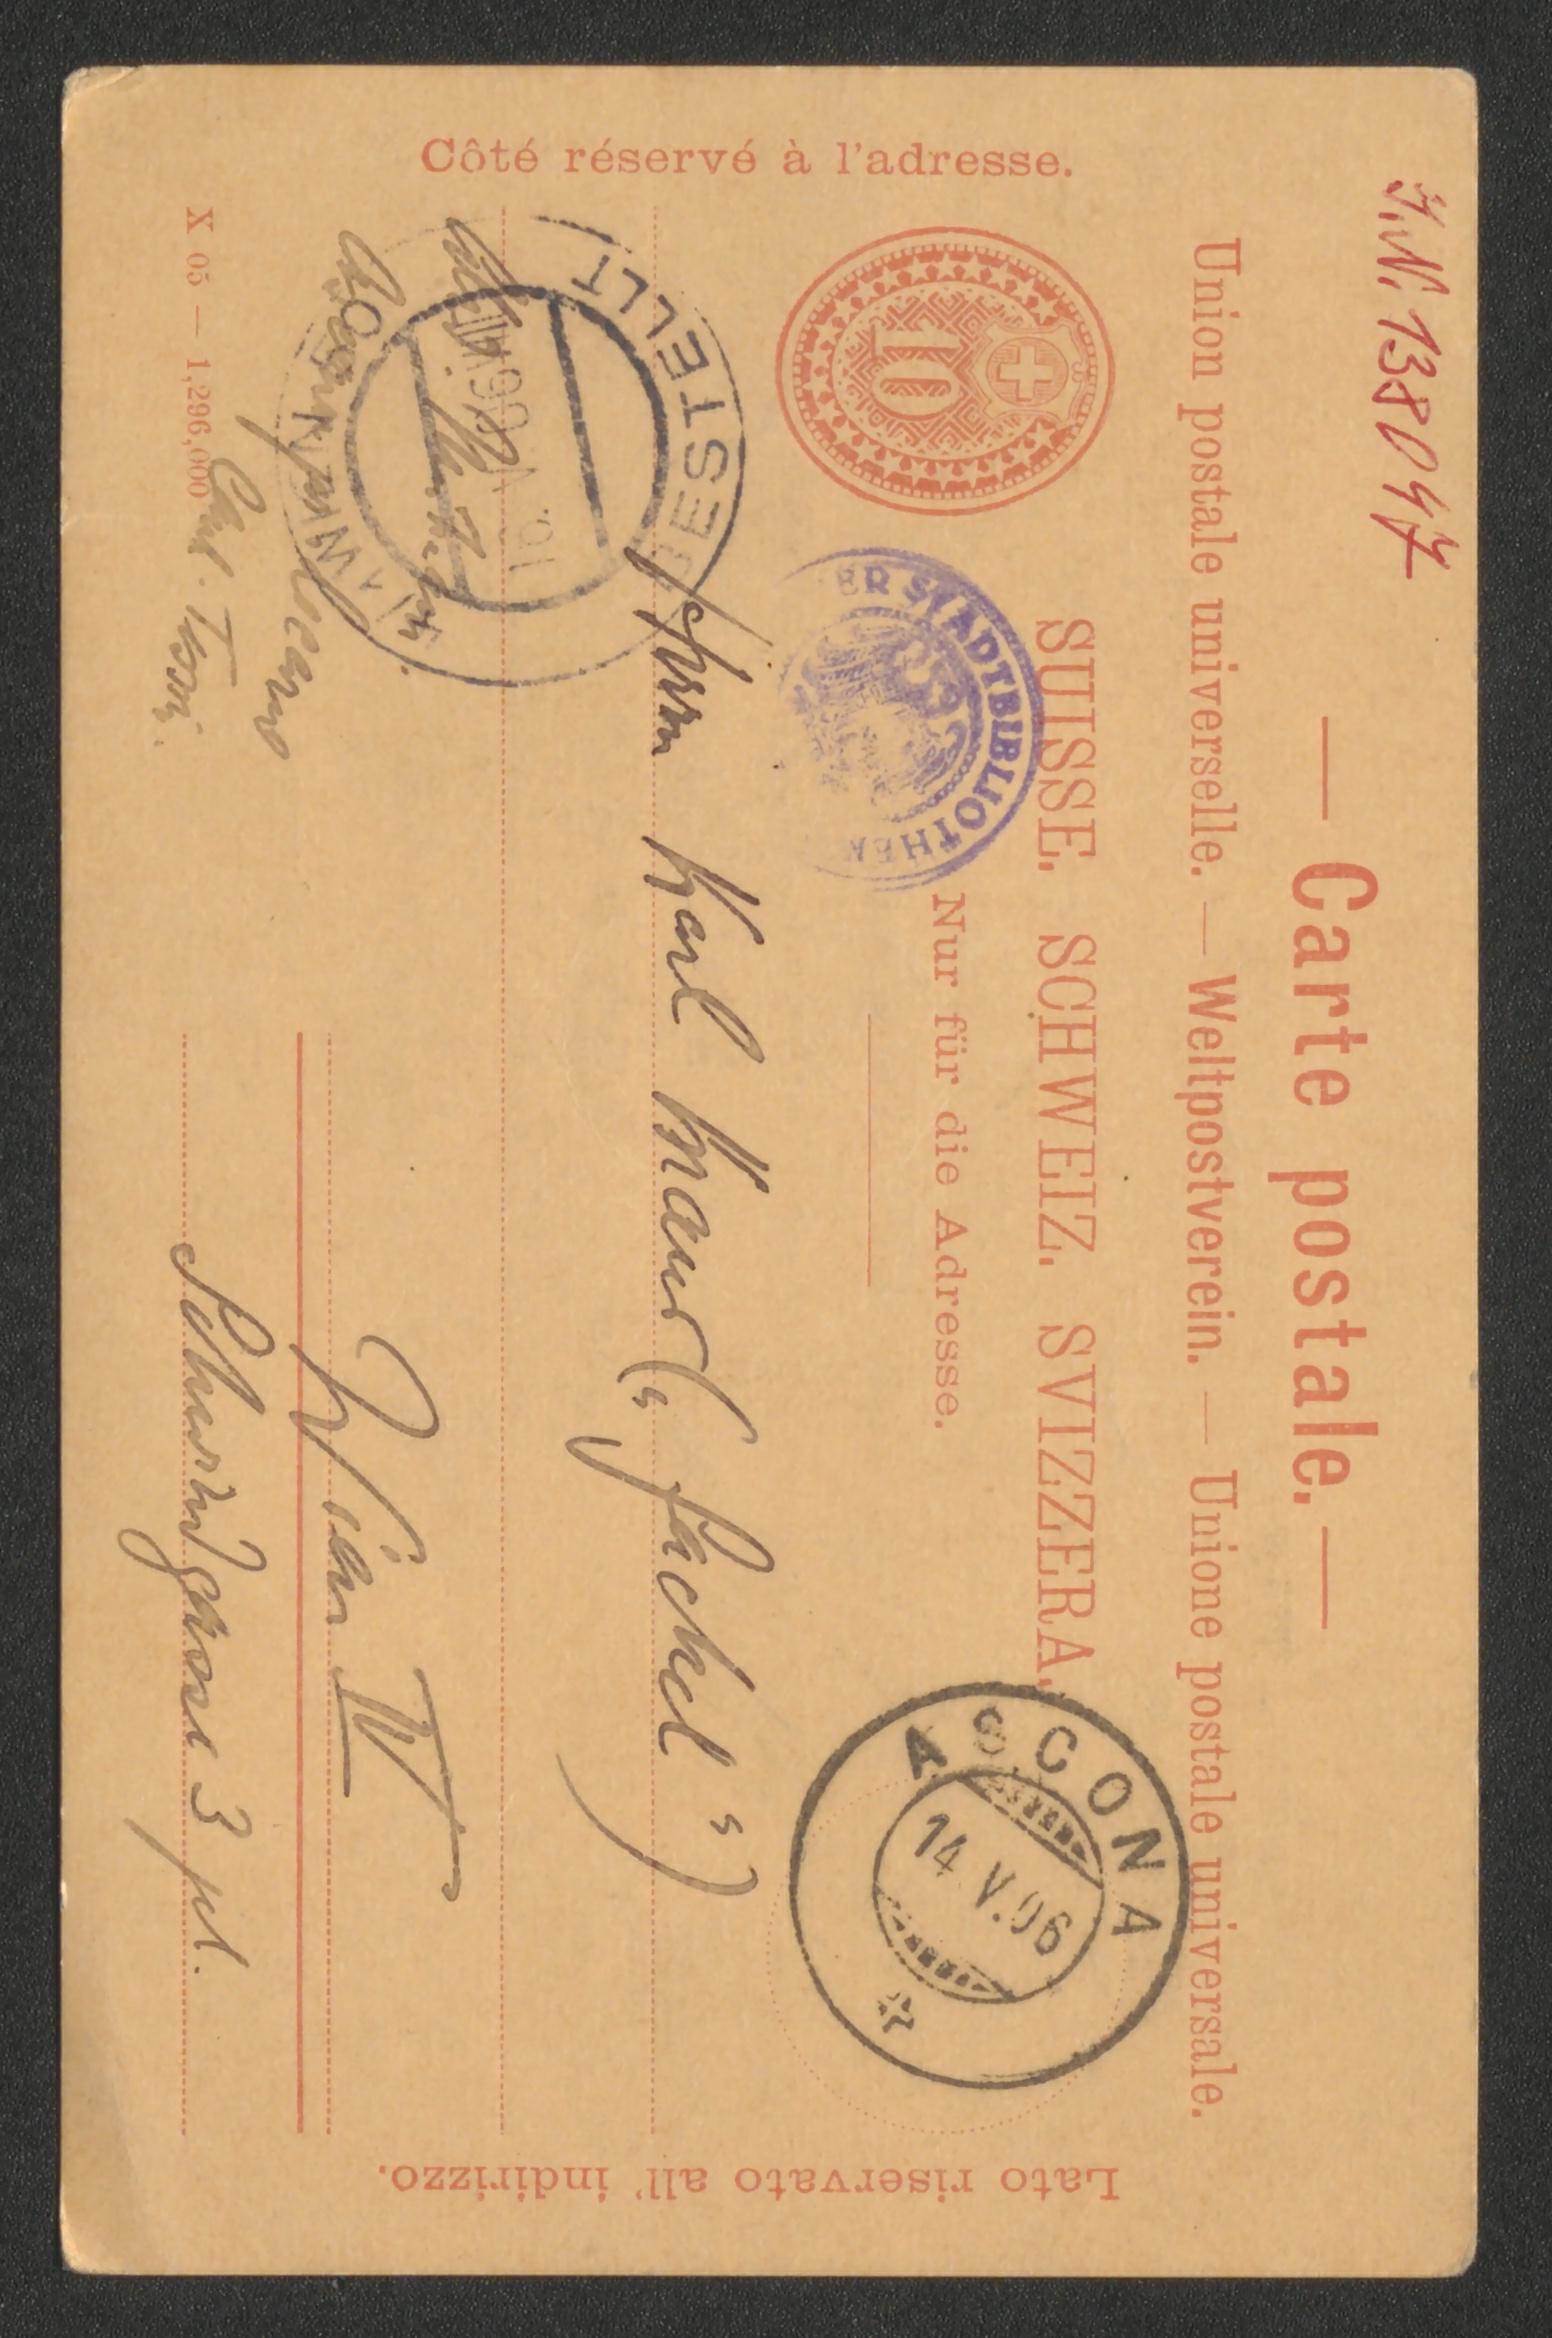 J.N. 138047
— Carte postale. —
Union postale universelle. — Weltpostverein. — Unione postale universale.
SUISSE. SCHWEIZ. SVIZZERA.
Nur für die Adresse.
Côté réservé à l'adresse.
Lato riservato all' indirizzo.
10
ER STADTBIBLIOTHEK
ASCONA
14 V.06
BESTELLT
WIEN
Herrn Karl Kraus („Fackel“)
Wien IV
Schwindgasse 3 pt.
Ascona
Locarno
Cant. Tessin.
X 05 — 1,296,000